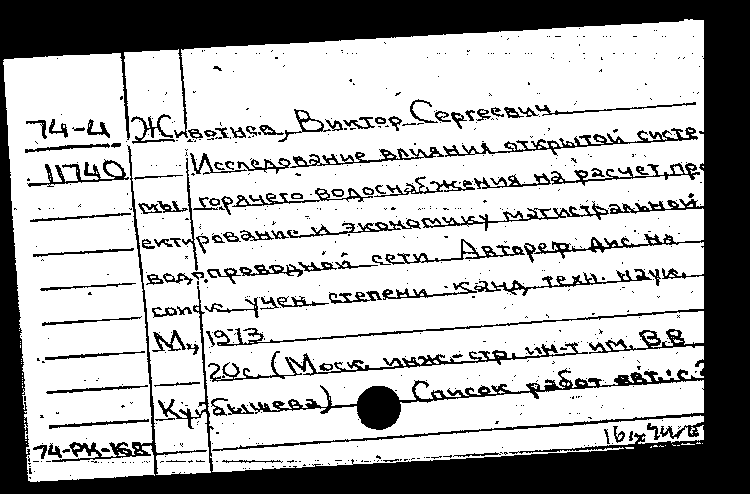 74-4 Животнев, Виктор Сергеевич.
11740 Исследование влияния открытой систе-
мы горячего водоснабжения на расчет, про
ектирование и экономику магистральной
водопроводной сети. Автореф. дис на
соиск. учен. степени канд. техн. наук.
М., 1973.
20с. (Моск. инж.-стр. ин-т им. В.В
Куйбышева) Список работ авт.: с.
74-РК-168